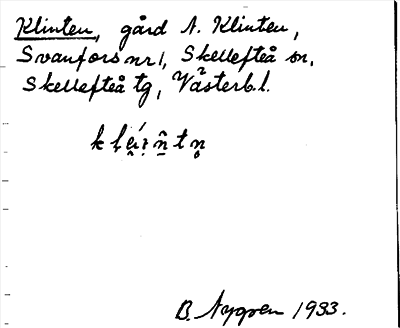 Klinten, gård N. Klinten,
Svanfors nr 1, Skellefteå sn,
Skellefteå tg, Västerb.l.
B. Nygren 1933.